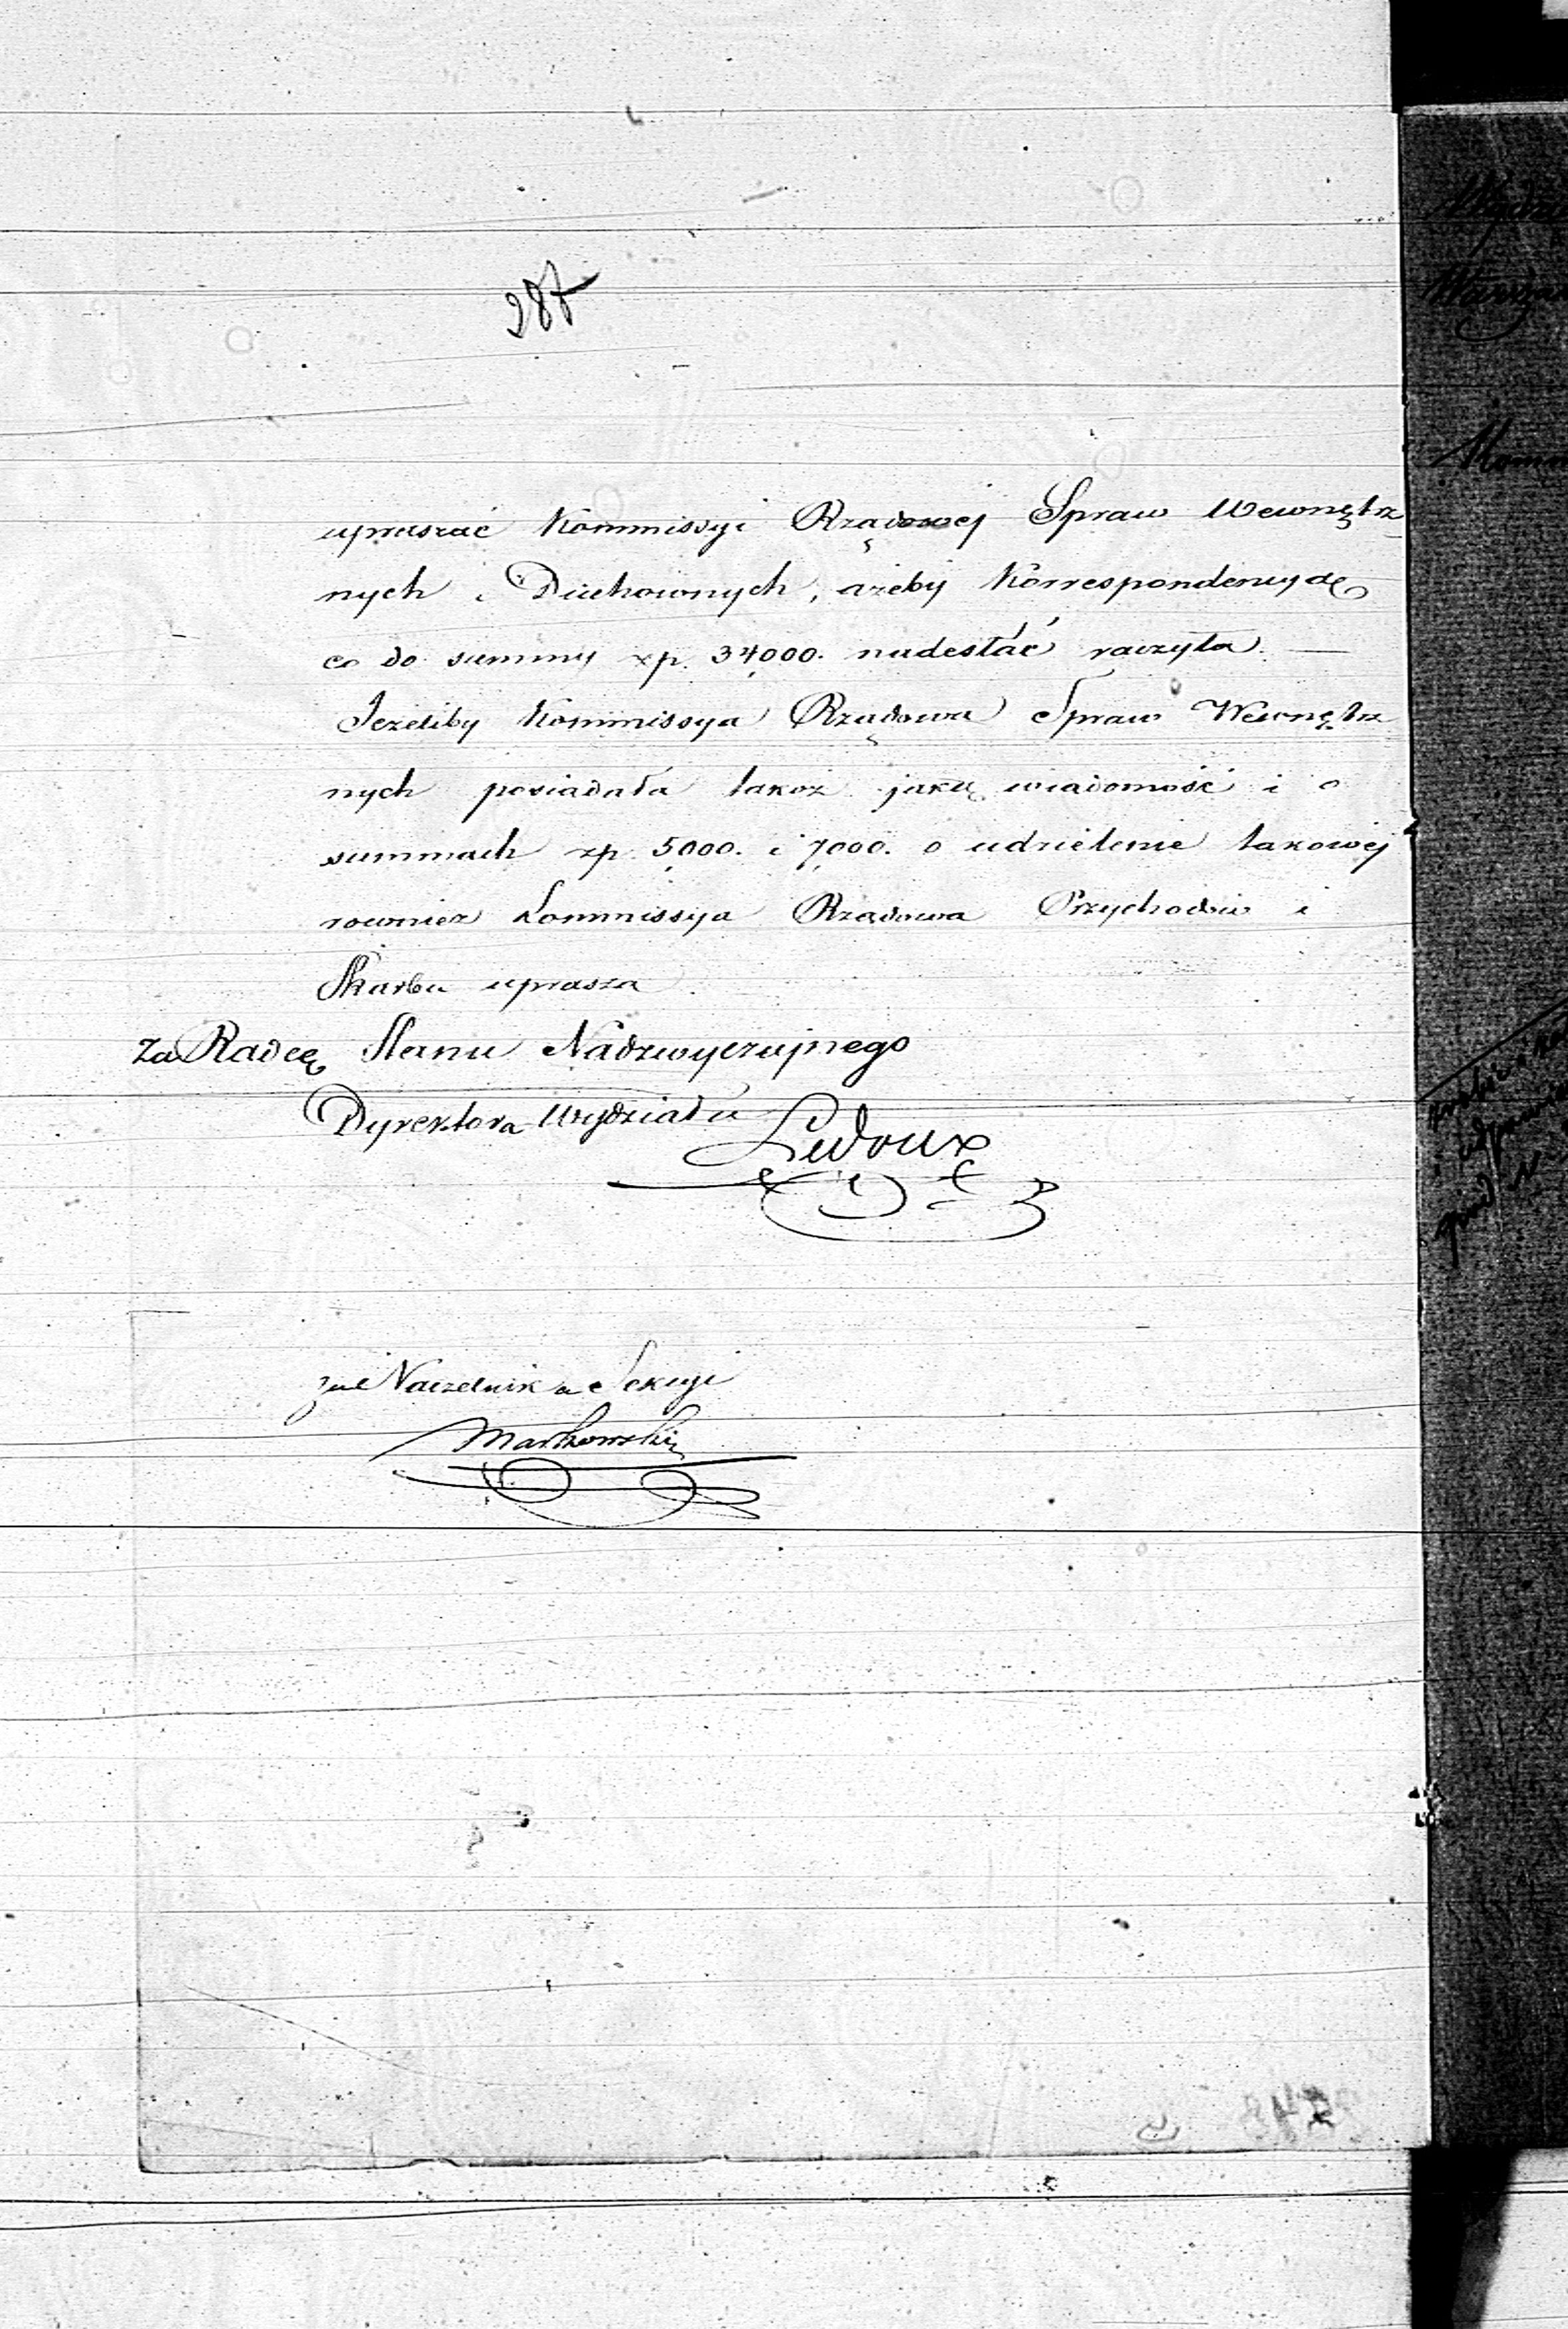 287
upraszać Kommissyi Rządowej Spraw Wewnętrz
nych i Duchownych, ażeby Korrespondencyą
co do summy zp. 34,000. nadesłać raczyła. —
Jeżeliby Kommissya Rządowa Spraw Wewnętrz
nych posiadała takoż jaką wiadomość i o
summach zp. 5,000. i 7,000. o udzielenie takowej
rownież Kommissya Rządowa Przychodów i
Skarbu uprasza.
Za Radcę Stanu Nadzwyczajnego
Dyrektora Wydziału
Ledoux
za Naczelnika Sekcyi
Markowski